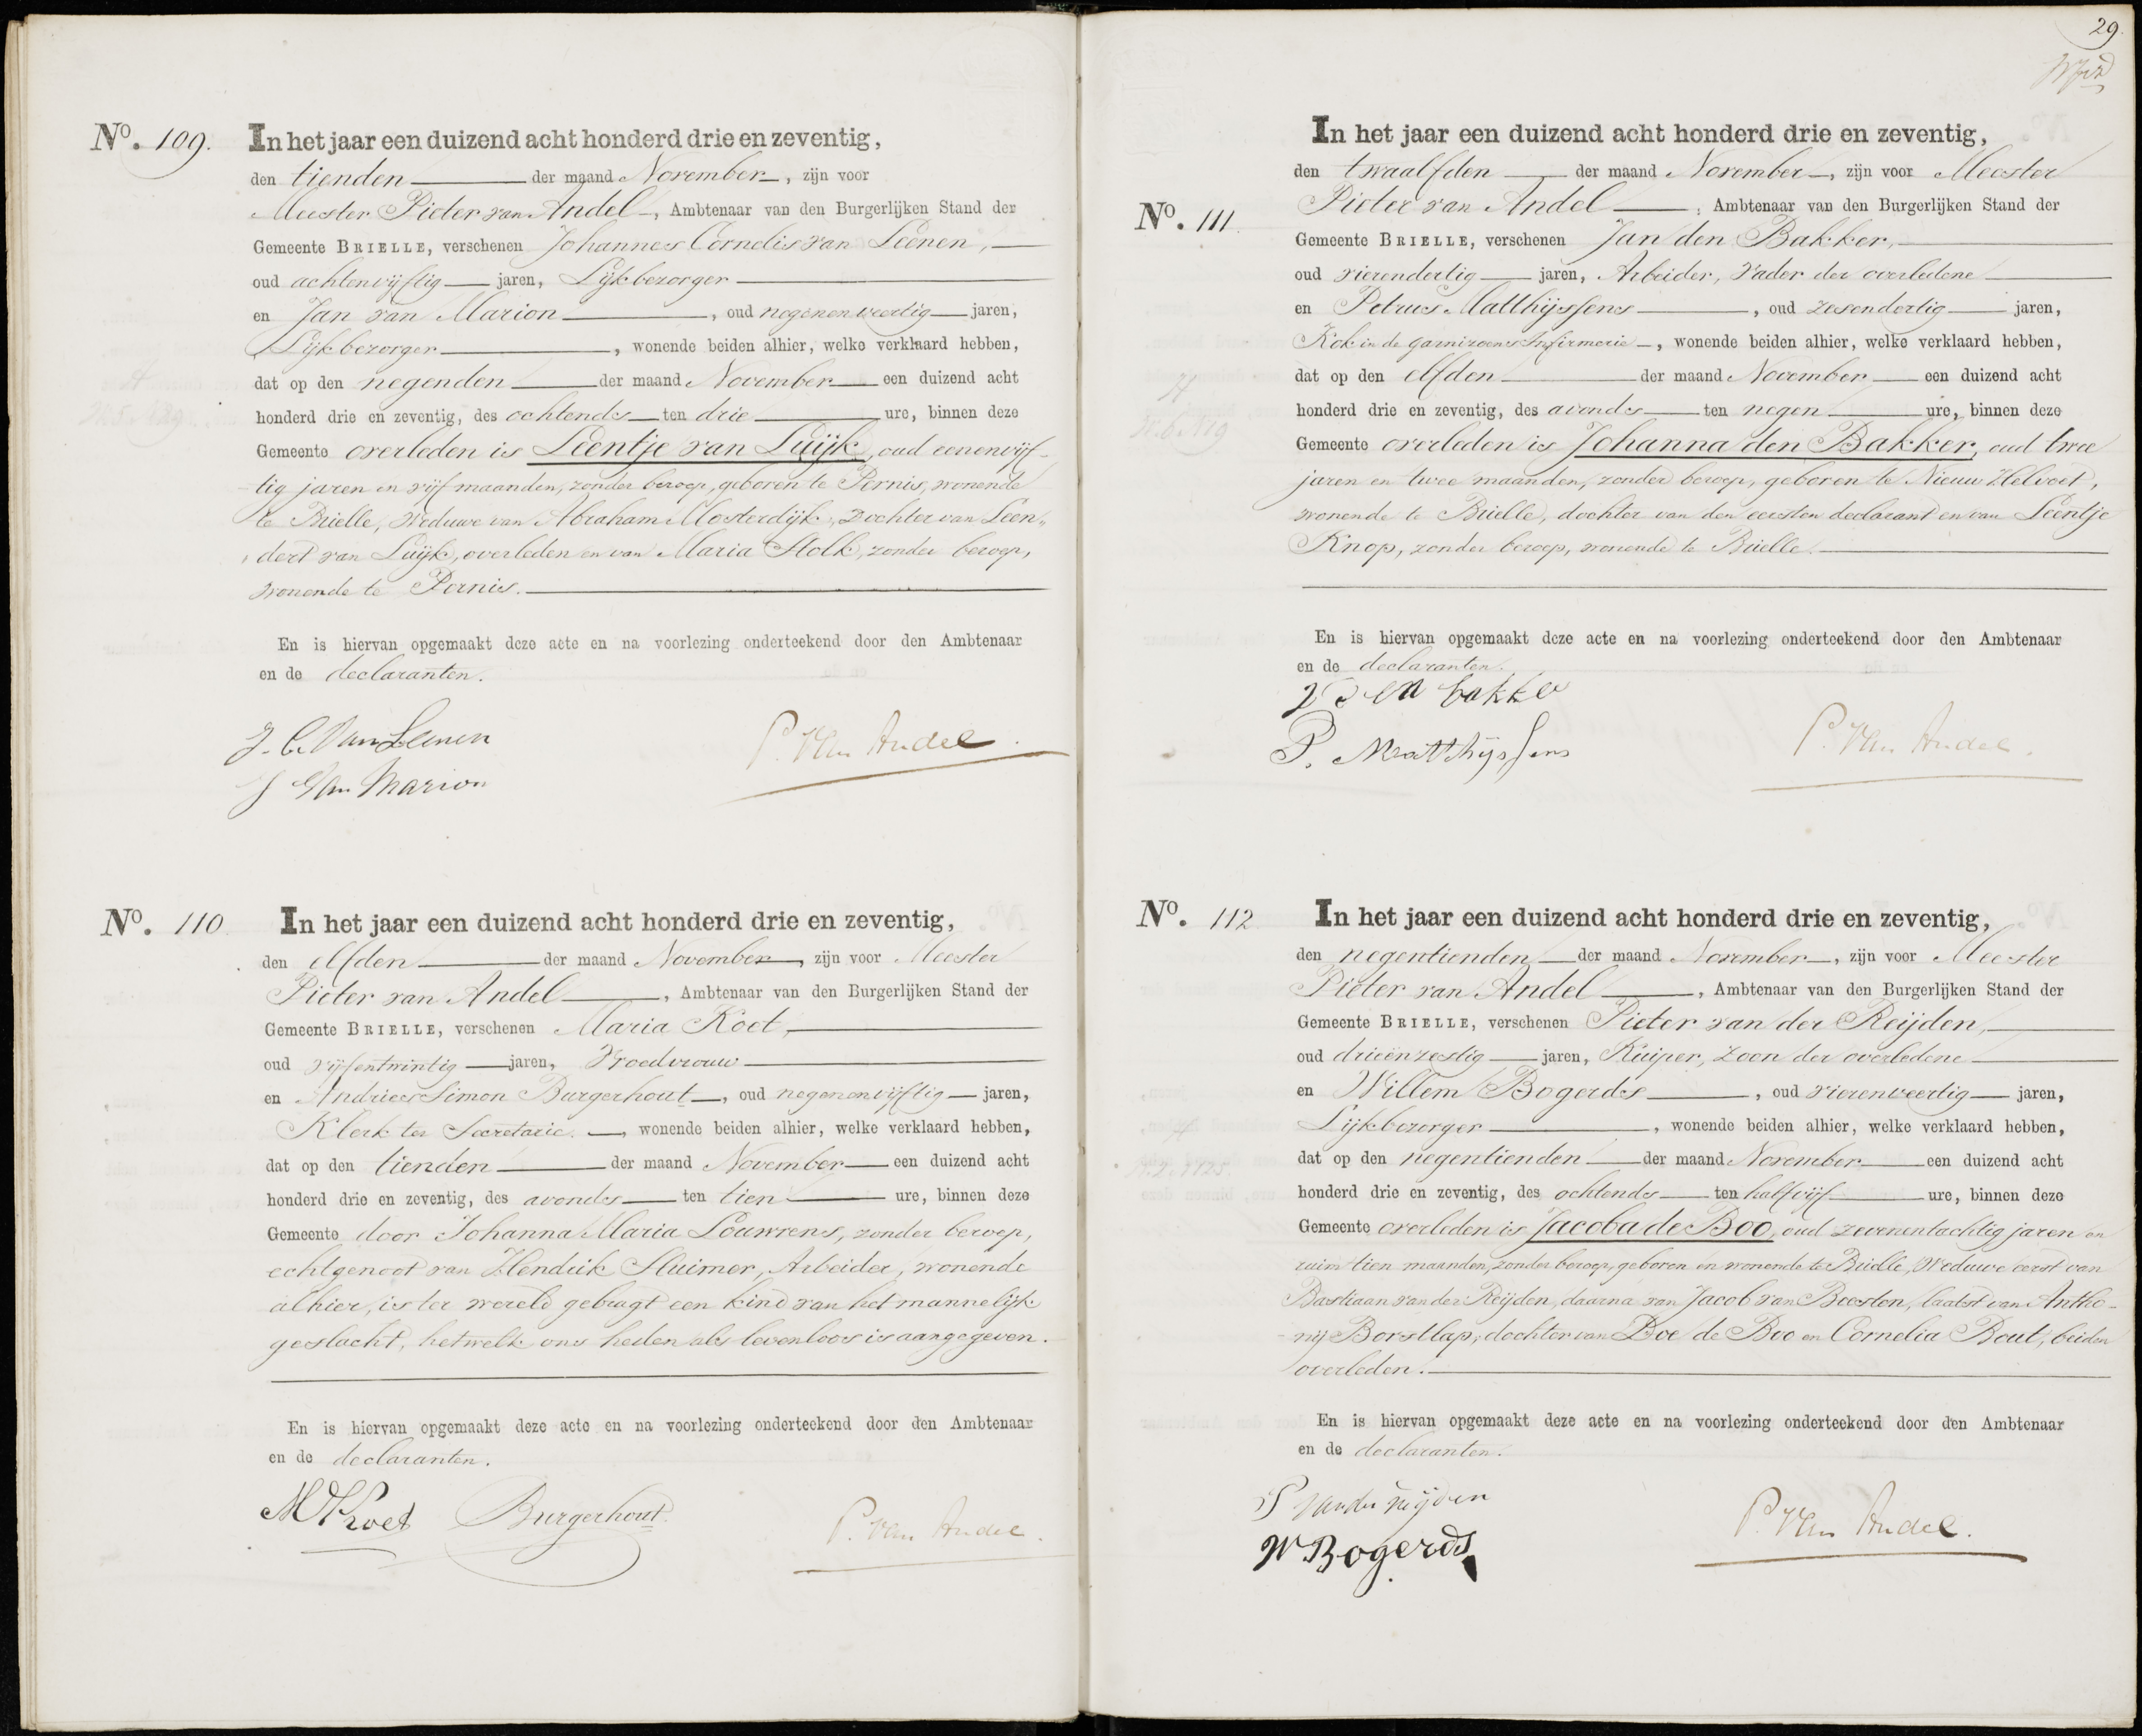 Nº. 109.
In het jaar een duizend acht honderd drie en zeventig,
den tienden der maand November, zijn voor
Meester Pieter van Andel, Ambtenaar van den Burgerlijken Stand der
Gemeente BRIELLE, verschenen Johannes Cornelis van Leenen,
oud achtenvijftig jaren, Lijkbezorger
en Jan van Marion, oud negenenveertig jaren,
Lijkbezorger, wonende beiden alhier, welke verklaard hebben,
dat op den negenden der maand November een duizend acht
honderd drie en zeventig, des ochtends ten drie ure, binnen deze
Gemeente overleden is Leentje van Luijk, oud eenenvijf-
tig jaren en vijf maanden, zonder beroep, geboren te Pernis, wonende
te Brielle, Weduwe van Abraham Mosterdijk, Dochter van Leen„
„dert van Luijk, overleden en van Maria Stolk, zonder beroep,
wonende te Pernis.
En is hiervan opgemaakt deze acte en na voorlezing onderteekend door den Ambtenaar
en de declaranten.
J. C. Van Leenen
P. Van Andel.
J Van Marion
Nº. 110
In het jaar een duizend acht honderd drie en zeventig,
den elfden der maand November, zijn voor Meester
Pieter van Andel, Ambtenaar van den Burgerlijken Stand der
Gemeente BRIELLE, verschenen Maria Koet,
oud vijfentwintig jaren, Vroedvrouw
en Andries Simon Burgerhout, oud negenenvijftig jaren,
Klerk ter Secretarie, wonende beiden alhier, welke verklaard hebben,
dat op den tienden der maand November een duizend acht
honderd drie en zeventig, des avonds ten tien ure, binnen deze
Gemeente door Johanna Maria Louwrens, zonder beroep,
echtgenoot van Hendrik Sluimer, Arbeider, wonende
alhier, is ter wereld gebragt een kind van het mannelijk
geslacht, hetwelk ons heden als levenloos is aangegeven.
En is hiervan opgemaakt deze acte en na voorlezing onderteekend door den Ambtenaar
en de declaranten.
M Koet Burgerhout P. Van Andel.
29.
Nº. 111.
In het jaar een duizend acht honderd drie en zeventig,
den twaalfden der maand November, zijn voor Meester
Pieter van Andel, Ambtenaar van den Burgerlijken Stand der
Gemeente BRIELLE, verschenen Jan den Bakker,
oud vierendertig jaren, Arbeider, Vader der overledene
en Petrus Matthijssens, oud zesendertig jaren,
Kok in de garnizoens Infirmerie, wonende beiden alhier, welke verklaard hebben,
dat op den elfden der maand November een duizend acht
honderd drie en zeventig, des avonds ten negen ure, binnen deze
Gemeente overleden is Johanna den Bakker, oud twee
jaren en twee maanden, zonder beroep, geboren te Nieuw Helvoet,
wonende te Brielle, dochter van den eersten declarant en van Leentje
Knop, zonder beroep, wonende te Brielle.
En is hiervan opgemaakt deze acte en na voorlezing onderteekend door den Ambtenaar
en de declaranten.
J den bakker
P. Matthijssens
P. Van Andel.
Nº. 112
In het jaar een duizend acht honderd drie en zeventig,
den negentienden der maand November, zijn voor Meester
Pieter van Andel, Ambtenaar van den Burgerlijken Stand der
Gemeente BRIELLE, verschenen Pieter van der Reijden,
oud drieënzestig jaren, Kuiper, Zoon der overledene
en Willem Bogerds, oud vierenveertig jaren,
Lijkbezorger, wonende beiden alhier, welke verklaard hebben,
dat op den negentienden der maand November een duizend acht
honderd drie en zeventig, des ochtends ten half vijf ure, binnen deze
Gemeente overleden is Jacoba de Boo, oud zevenentachtig jaren en
ruim tien maanden, zonder beroep, geboren en wonende te Brielle, Weduwe eerst van
Bastiaan van der Reijden, daarna van Jacob van Beesten, laatst van Antho-
nij Borstlap; dochter van Boe de Boo en Cornelia Bout, beiden
overleden.
En is hiervan opgemaakt deze acte en na voorlezing onderteekend door den Ambtenaar
en de declaranten.
P van der reijden
W Bogerds
P. Van Andel.